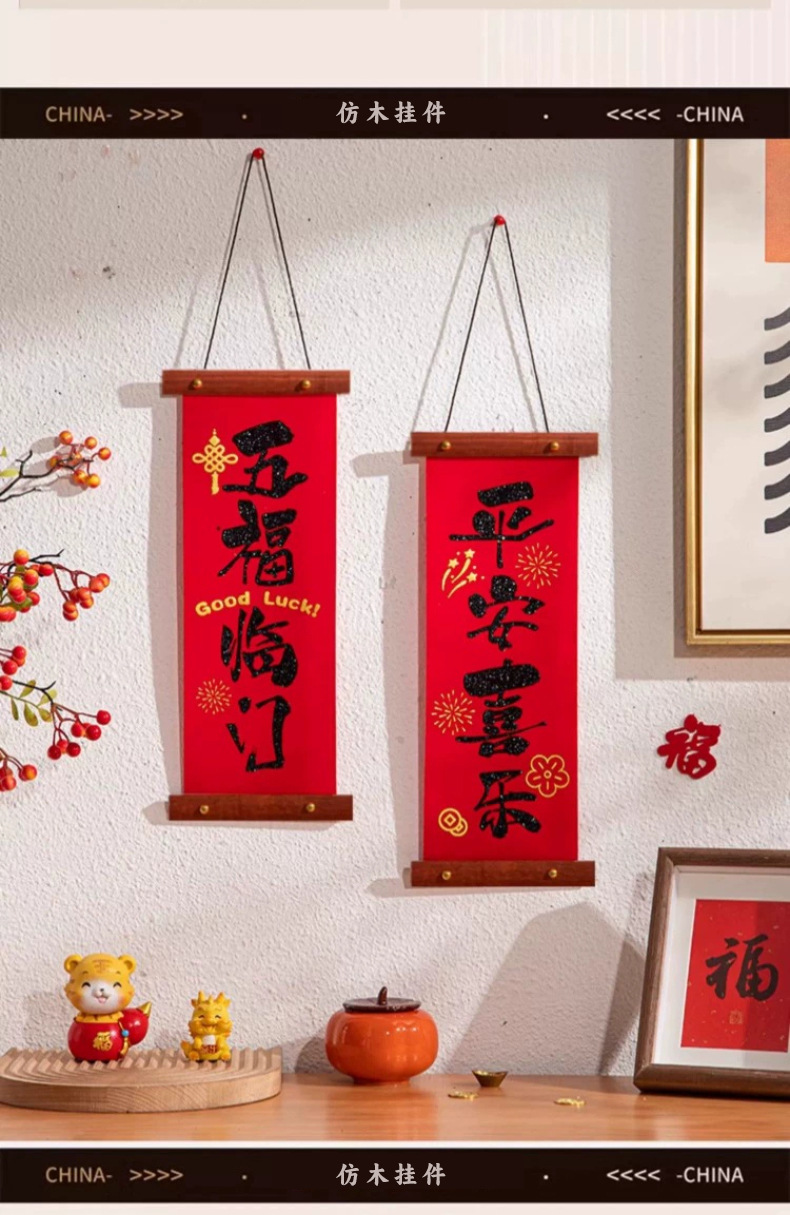 CHINA- >>>> · 仿木挂件 · <<<< -CHINA
五福临门
Good Luck!
平安喜乐
福
福
福
CHINA- >>>> · 仿木挂件 · <<<< -CHINA